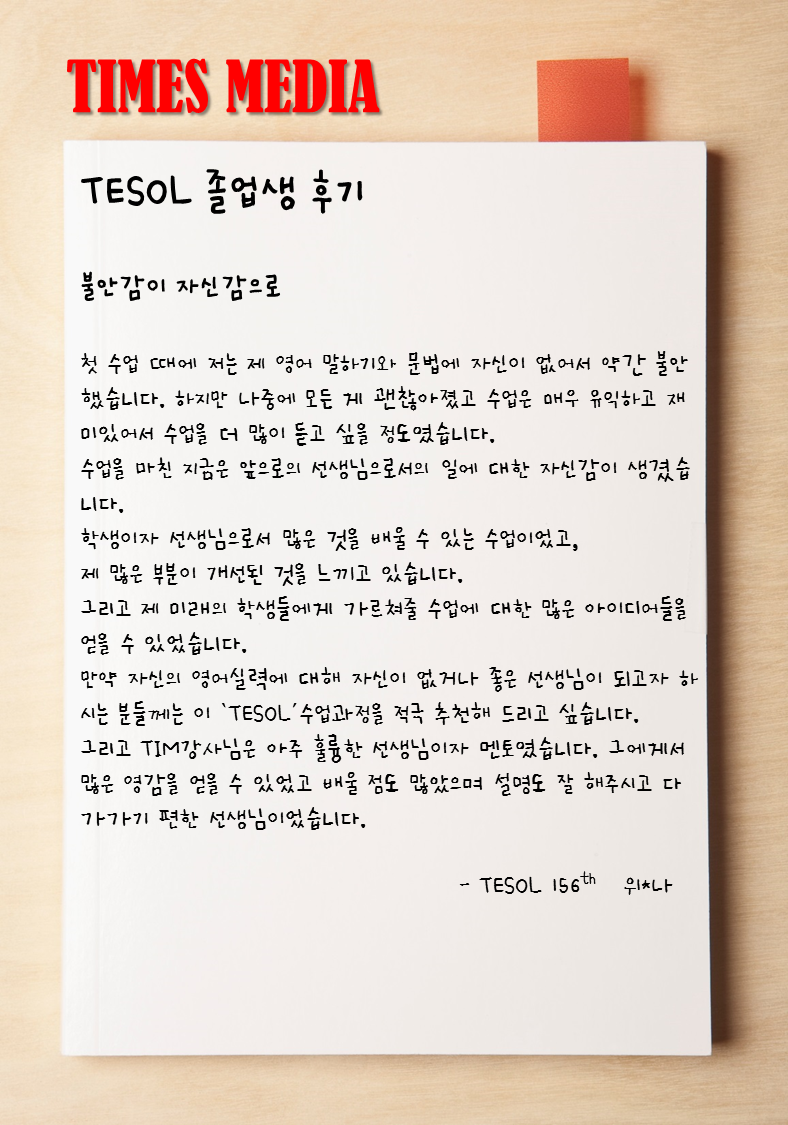 TIMES MEDIA
TESOL 졸업생 후기
불안감이 자신감으로
첫 수업 때에 저는 제 영어 말하기와 문법에 자신이 없어서 약간 불안
했습니다. 하지만 나중에 모든 게 괜찮아졌고 수업은 매우 유익하고 재
미있어서 수업을 더 많이 듣고 싶을 정도였습니다.
수업을 마친 지금은 앞으로의 선생님으로서의 일에 대한 자신감이 생겼습
니다.
학생이자 선생님으로서 많은 것을 배울 수 있는 수업이었고,
제 많은 부분이 개선된 것을 느끼고 있습니다.
그리고 제 미래의 학생들에게 가르쳐줄 수업에 대한 많은 아이디어들을
얻을 수 있었습니다.
만약 자신의 영어실력에 대해 자신이 없거나 좋은 선생님이 되고자 하
시는 분들께는 이 ‘TESOL’수업과정을 적극 추천해 드리고 싶습니다.
그리고 TIM강사님은 아주 훌륭한 선생님이자 멘토였습니다. 그에게서
많은 영감을 얻을 수 있었고 배울 점도 많았으며 설명도 잘 해주시고 다
가가기 편한 선생님이었습니다.
- TESOL 156th 위*나